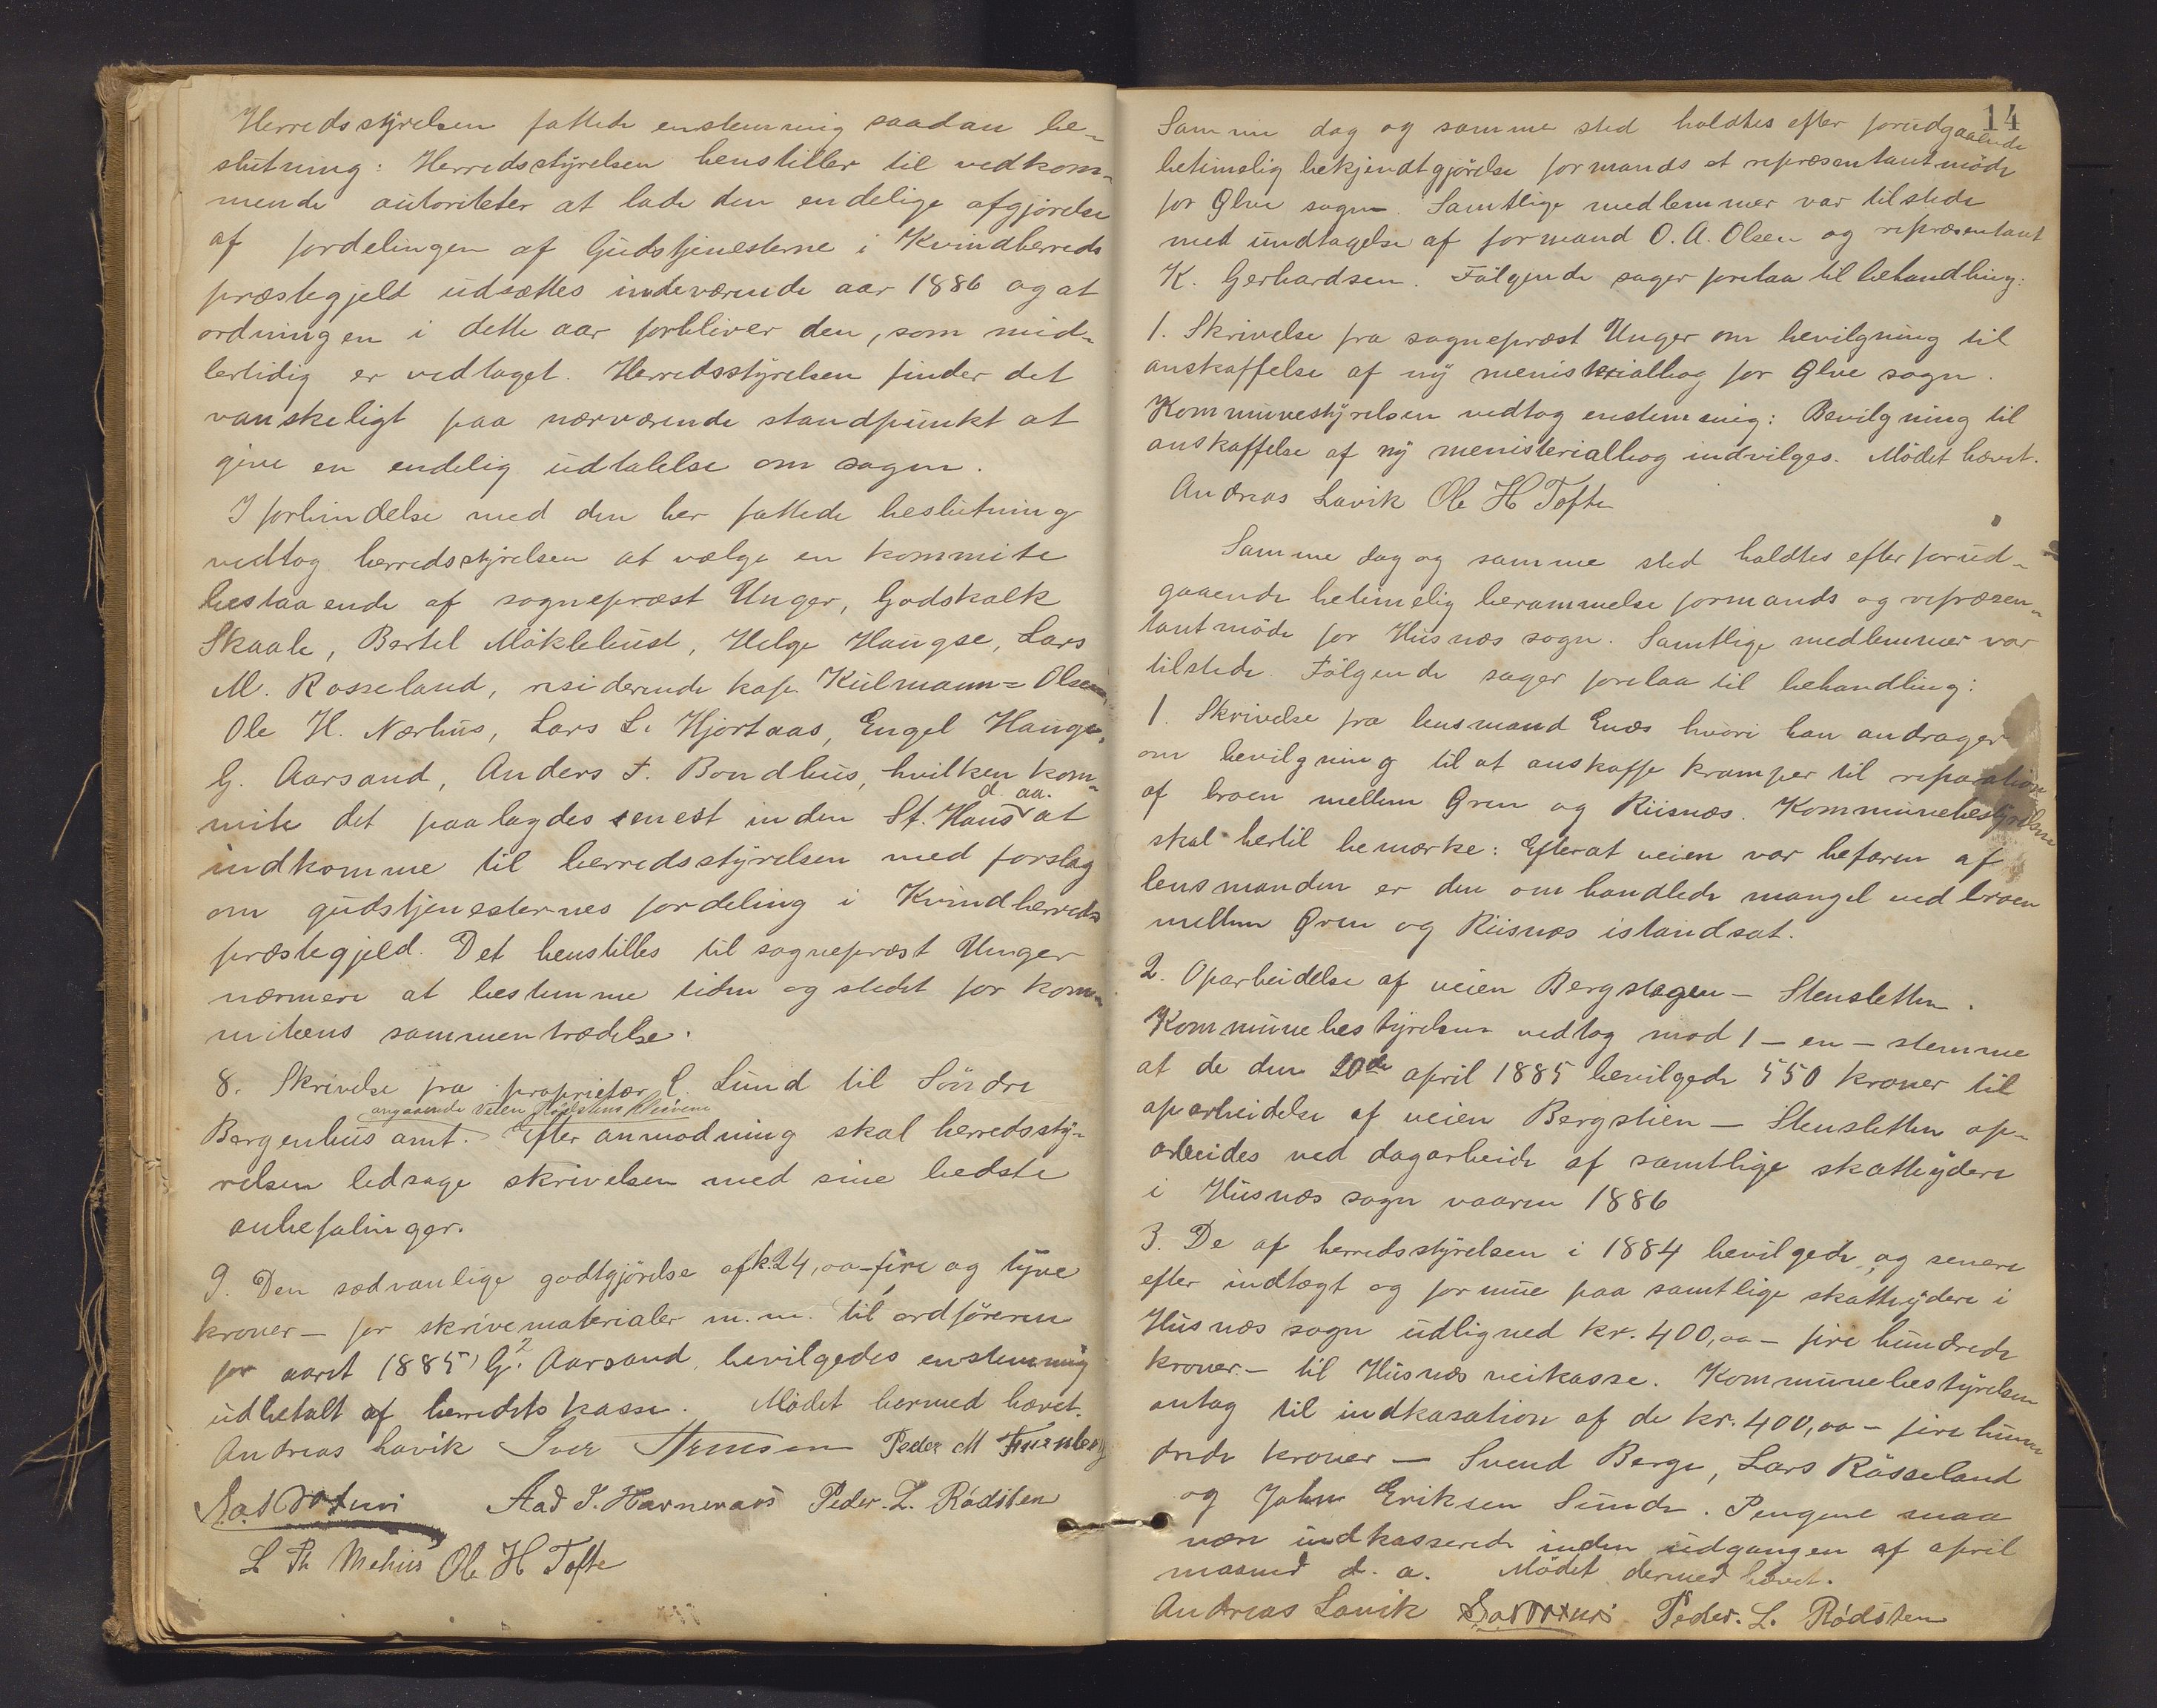 Herredsstyrelsen fattede enstemmig saadan be-
slutning: Herredsstyrelsen henstiller til vedkom-
mende autoriteter at lade den endelige afgjørelse
af fordelingen af Gudstjenesterne i Kvindherreds
præstegjeld udsættes indeværende aar 1886 og at
ordningen i dette aar forbliver den, som mid-
lertidig er vedtaget. Herredsstyrelsen finder det
vanskeligt paa nærværende standpunkt at
give en endelig udtalelse om sagen.
I forbindelse med den her fattede beslutning
vedtog herredsstyrelsen at vælge en kommite
bestaaende af sognepræst Unger, Godskalk
Skaale, Bertel Møklebust, Helge Haugse, Lars
M. Rosseland, residerende kap. Kulmann=Olsen,
Ole H. Nærhus, Lars L. Hjortaas, Engel Hauge,
G. Aarsand, Anders F. Bondhus, hvilken kom-
mite det paalagdes senest inden St. Hans d. aa. at
indkomme til herredsstyrelsen med forslag
om gudstjenesternes fordeling i Kvindherreds
præstegjeld. Det henstilles til sognepræst Unger
nærmere at bestemme tiden og stedet for kom-
miteens sammentrædelse.
8. Skrivelse fra proprietær C. Lund til Søndre
angaaende veien
Bergenhus amt. Efter anmodning skal herredssty-
relsen ledsage skrivelsen med sine bedste
anbefalinger.
9. Den sædvanlige godtgjørelse af k. 24,00 - fire og tyve
kroner - for skrivematerialer m.m. til ordføreren
for aaret 1885 G. Aarsand, bevilgedes enstemmig
udbetalt af herredets kasse. Mødet hermed hævet.
Andreas Lavik Iver Peder M
Peder. L. Rødsten
L Th Mehus Ole H Tofte
14
Samme dag og samme sted holdtes efter forudgaaende
betimelig bekjendtgjørelse formands et repræsentantmøde
for Ølve sogn. Samtlige medlemmer var tilstede
med undtagelse af formand O. A. Olsen og repræsentant
K. Gerhardsen. Følgende sager forelaa til behandling:
1. Skrivelse fra sognepræst Unger om bevilgning til
anskaffelse af ny menisterialbog for Ølve sogn.
Kommunestyrelsen vedtog enstemmig: Bevilgning til
anskaffelse af ny menisterialbog indvilges. Mødet hævet.
Andreas Lavik Ole H Tofte
Samme dag og samme sted holdtes efter forud-
gaaende betimelig berammelse formands og repræsen-
tantmøde for Husnæs sogn. Samtlige medlemmer var
tilstede. Følgende sager forelaa til behandling:
1. Skrivelse fra lensmand Enæs hvori han andrager
om bevilgning til at anskaffe kramper til reparation
af broen mellem Øren og Riisnæs. Kommunebestyrelsen
skal hertil bemærke: Efterat veien var befaren af
lensmanden er den omhandlede mangel ved broen
mellem Øren og Riisnæs istandsat.
2. Oparbeidelse af veien Bergstøgen - Stensletten.
Kommunebestyrelsen vedtog mod 1 - en - stemme
at de den 20de april 1885 bevilgede 550 kroner til
oparbeidelse af veien Bergstien - Stensletten op-
arbeides ved dagarbeide af samtlige skatteydere
i Husnæs sogn vaaren 1886
3. De af herredsstyrelsen i 1884 bevilgede, og senere
efter indtægt og formue paa samtlige skatteydere i
Husnæs sogn udligned kr. 400,00 - fire hundrede
kroner - til Husnæs veikasse. Kommunebestyrelsen
antog til indkasation af de kr. 400,00 - fire hun-
drede kroner - Svend Berge, Lars Røsseland
og John Eriksen Sunde. Pengene maa
være indkasserede inden udgangen af april
maaned d. a. Mødet dermed hævet.
Andreas Lavik Peder. L. Rødsten